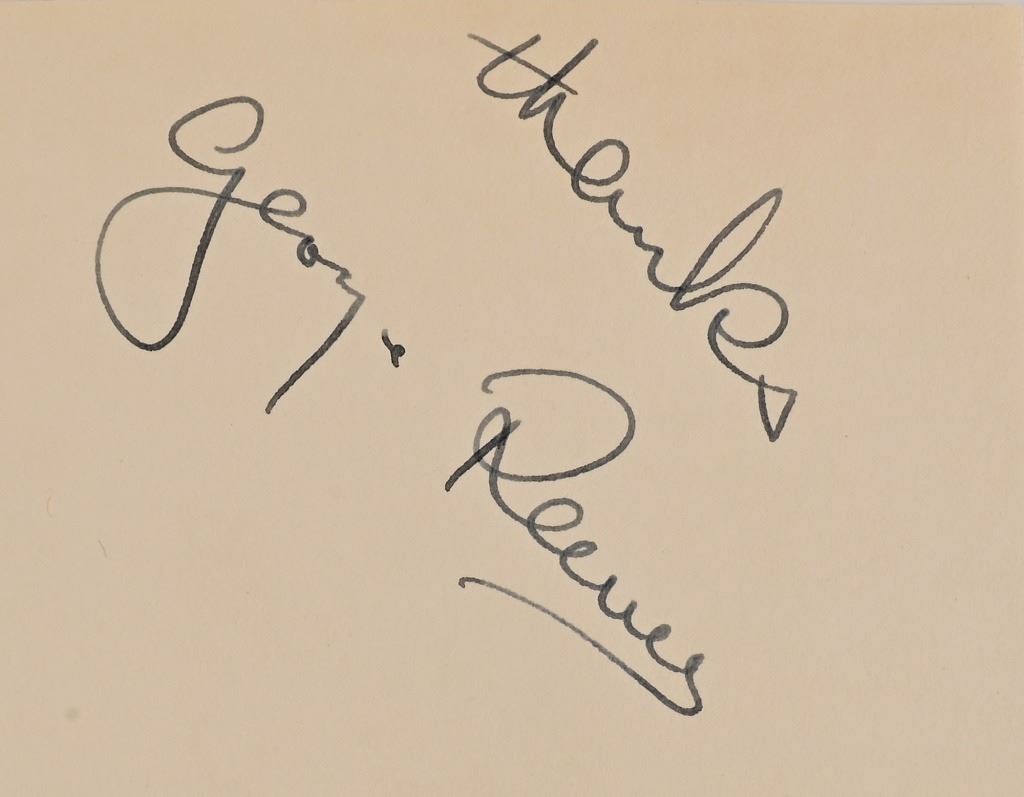 Thanks
George
Reeves